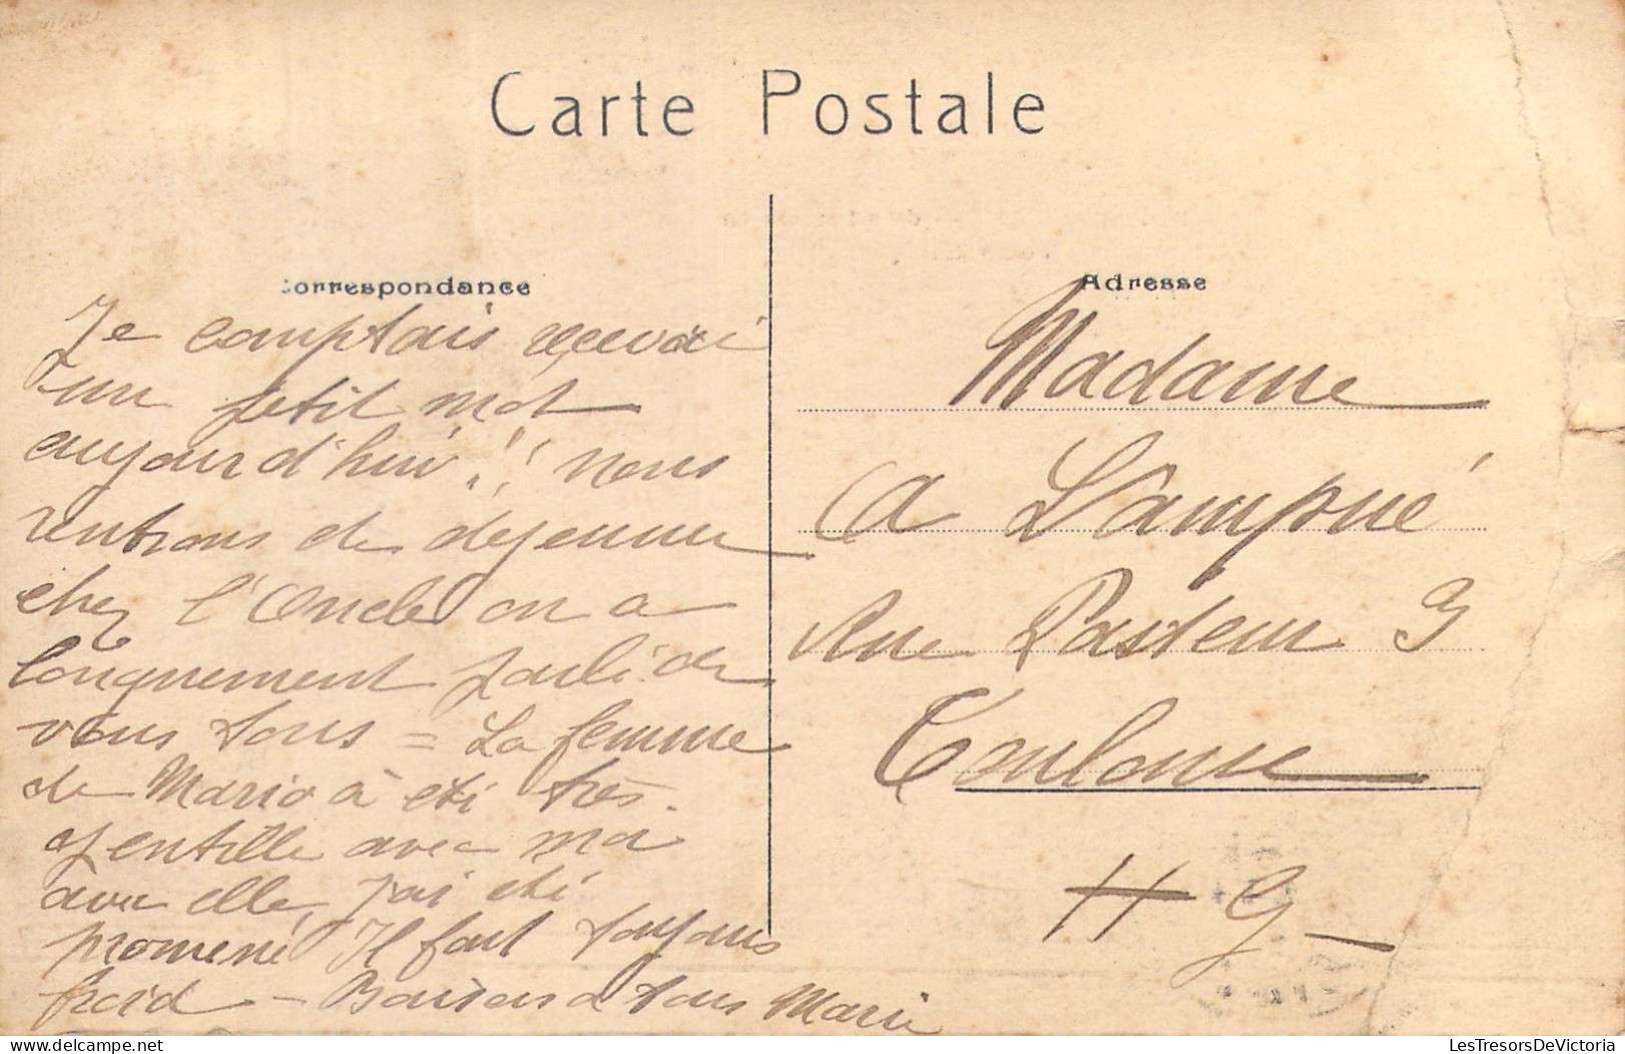 Carte Postale
Correspondance
Je comptais recevoir
un petit mot
aujourd'hui !! nous
rentrons de dejeuner
chez l'Oncle on a
longuement parlé de
vous tous = La femme
de Mario à été très
gentille avec moi
avec elle, j'ai été
promené Il fait toujours
froid – Baisers a tous Marie
Adresse
Madame
A Lampué
Rue Pasteur 9
Toulouse
H G –
LesTresorsDeVictoria
delcampe.net